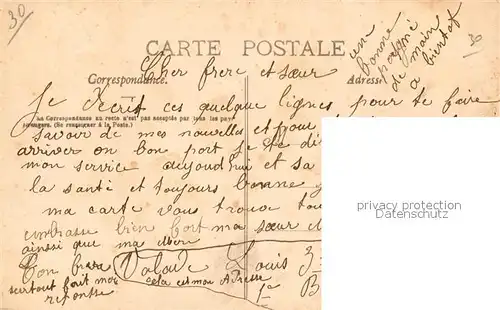 30
CARTE POSTALE
une
bonne
poigné
de main
a
bientot
30
Correspondance.
Adresse
Cher frere et sœur
Je décrit ces quelque lignes pour te faire
La Correspondance au recto n'est pas acceptée par tous les pays
étrangers. (Se renseigner à la Poste.)
savoir de mes nouvelles et pour
arriver on bon port je te di
mon service aujoudhui et sa
la santi et toujours bonne
ma carte vous trouve tou
embrasse bien fort ma sœur
ainsi que ma
Ton frere Louis
surtout fait moi
reponsse
cela est mon Adresse
privacy protection
Datenschutz